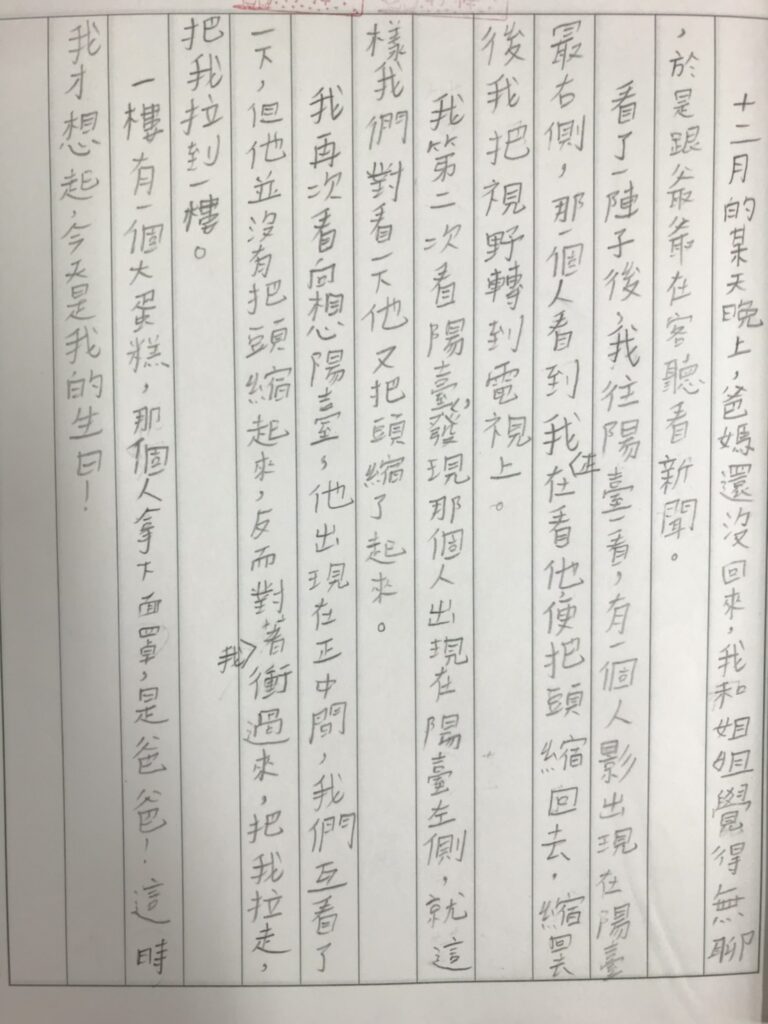 十二月的某天晚上，爸媽還沒回來，我和姐姐覺得無聊
，於是跟爺爺在客聽看新聞。
看了一陣子後，我往陽臺一看，有一個人影出現在陽臺
最右側，那一個人看到我正在看他便把頭縮回去，縮回去
後我把視野轉到電視上。
我第二次看陽臺，發現那個人出現在陽臺左側，就這
樣我們對看一下他又把頭縮了起來。
我再次看向想陽臺，他出現在正中間，我們互看了
一下，但他並沒有把頭縮起來，反而對著我衝過來，把我拉走，
把我拉到一樓。
一樓有一個大蛋糕，那個人拿下面罩，是爸爸！這時
我才想起，今天是我的生日！